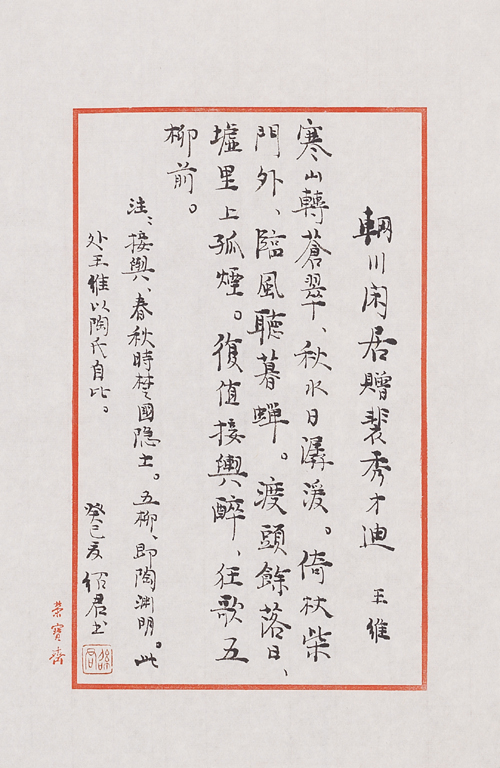 輞川閑居贈裴秀才迪 王維
寒山轉蒼翠、秋水日潺湲。倚杖柴
門外、臨風聽暮蟬。渡頭餘落日、
墟里上孤煙。復值接輿醉、狂歌五
柳前。
注、接輿、春秋時楚國隐士。五柳、即陶渊明。此
处王維以陶氏自比。
癸巳夏绍君书
榮寶齋